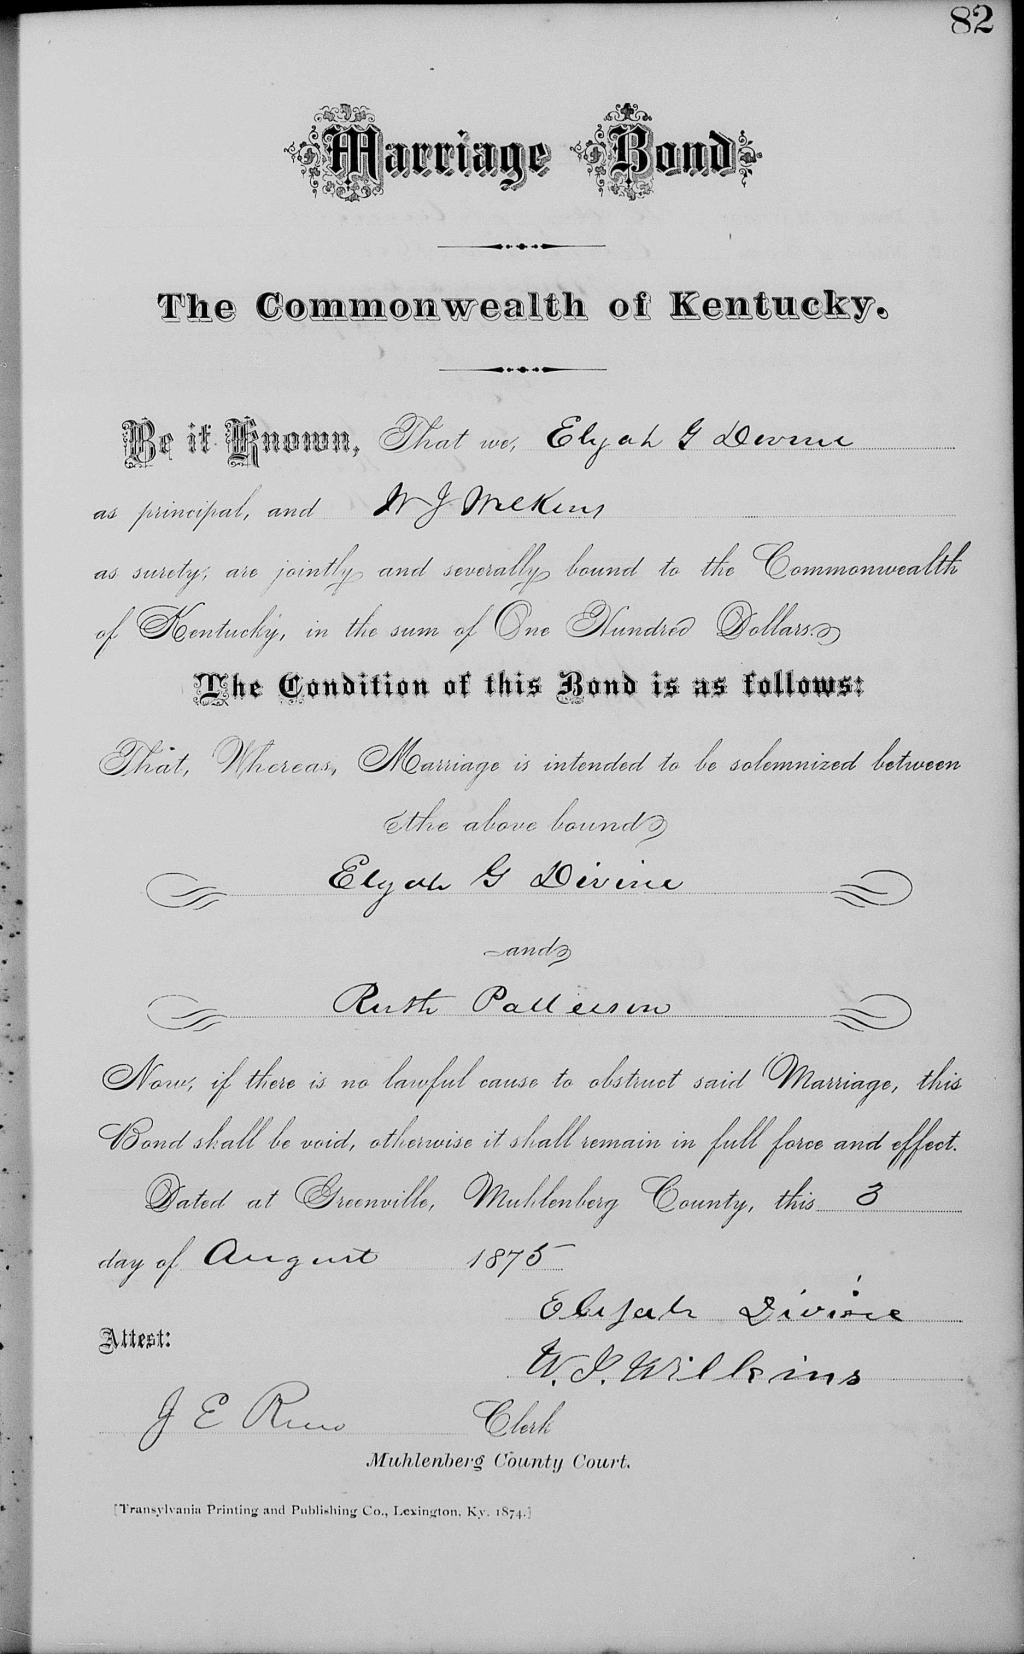 82
Marriage Bond
The Commonwealth of Kentucky.
Be it Known, That we, Elijah G Divine
as principal, and W J Wilkins
as surety, are jointly and severally bound to the Commonwealth
of Kentucky, in the sum of One Hundred Dollars.
The Condition of this Bond is as follows:
That, Whereas, Marriage is intended to be solemnized between
the above bound
Elijah G Divine
and
Ruth Patterson
Now, if there is no lawful cause to obstruct said Marriage, this
Bond shall be void, otherwise it shall remain in full force and effect.
Dated at Greenville, Muhlenberg County, this 3
day of August 1875
Elijah Divine
Attest:
W. J. Wilkins
J E Reno Clerk
Muhlenberg County Court.
[Transylvania Printing and Publishing Co., Lexington, Ky. 1874.]